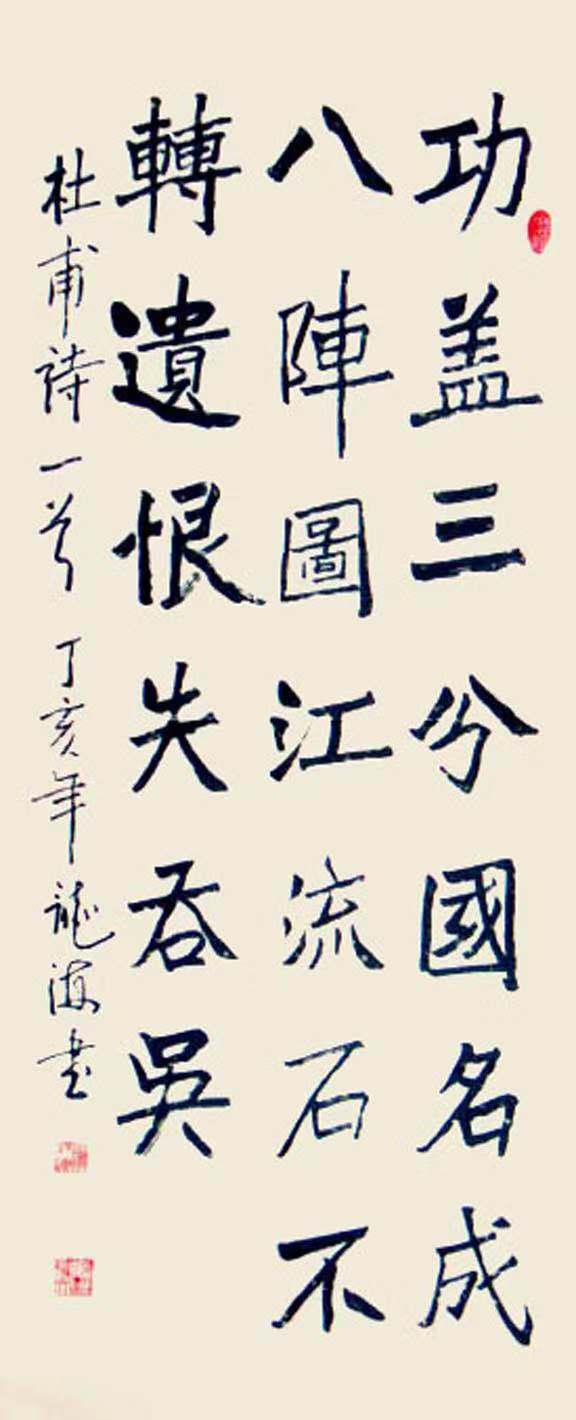 功盖三分國名成
八陣圖江流石不
轉遺恨失吞吳
杜甫詩一首 丁亥年龍海書